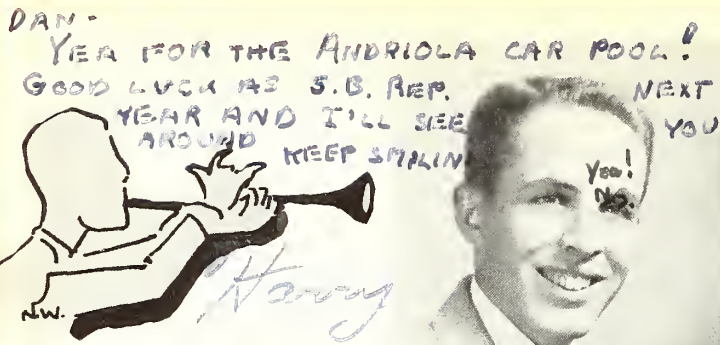 DAN-
YEA FOR THE ANDRIOLA CAR POOL!
GOOD LUCK AS S.B. REP. NEXT
YEAR AND I'LL SEE YOU
AROUND
KEEP SMILIN
N.W.